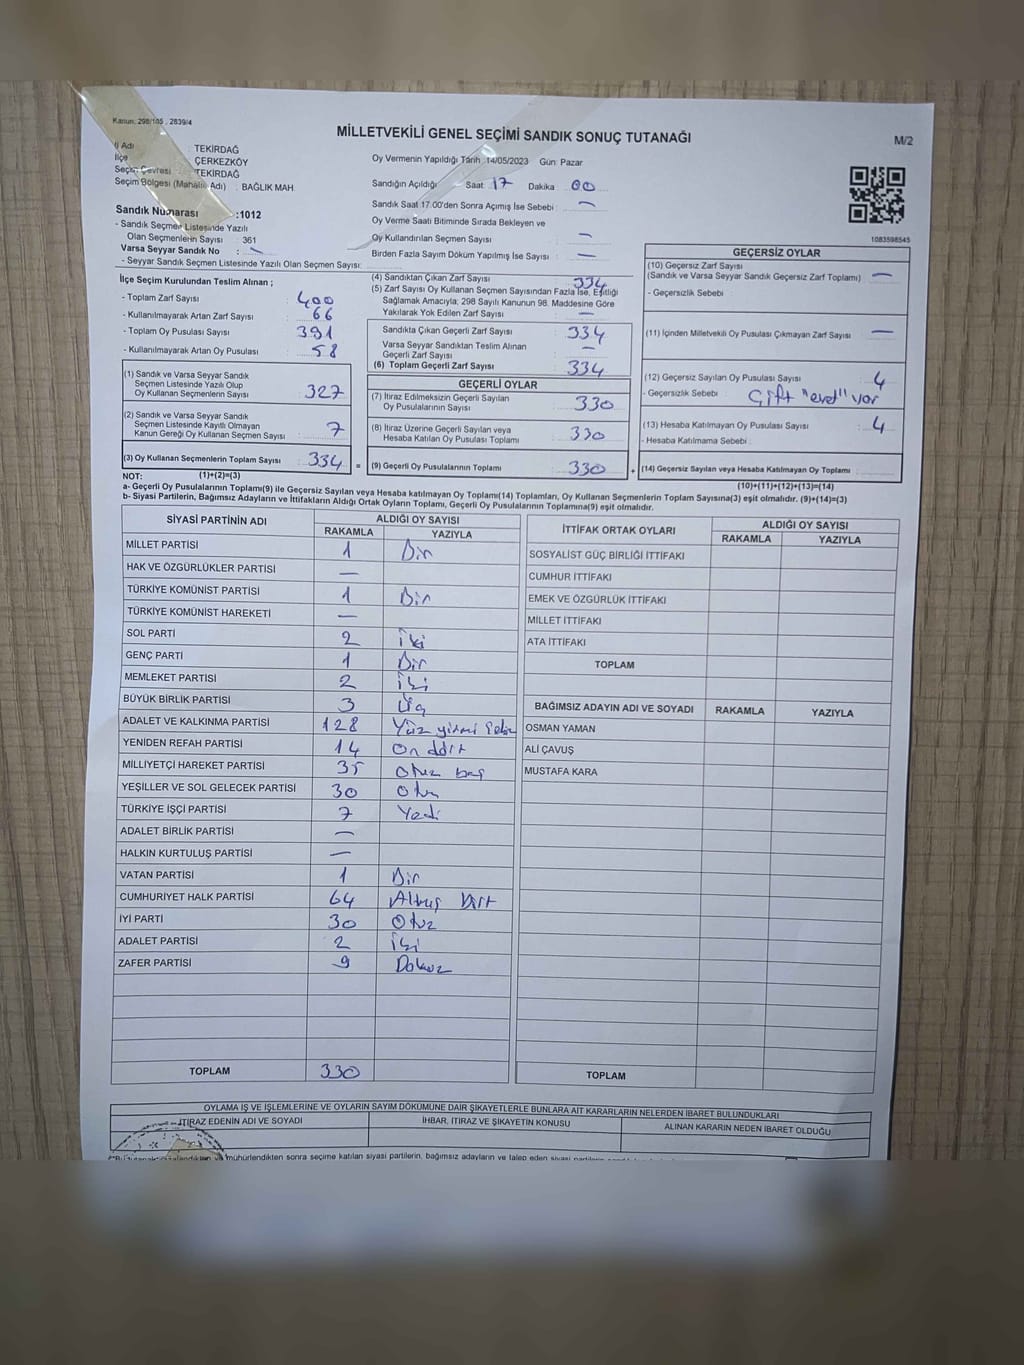 Kanun: 298/105 , 2839/4
MİLLETVEKİLİ GENEL SEÇİMİ SANDIK SONUÇ TUTANAĞI
M/2
İl Adı : TEKİRDAĞ
İlçe : ÇERKEZKÖY
Seçim Çevresi : TEKİRDAĞ
Seçim Bölgesi (Mahalle Adı) : BAĞLIK MAH.
Sandık Numarası :1012
- Sandık Seçmen Listesinde Yazılı
Olan Seçmenlerin Sayısı : 361
Varsa Seyyar Sandık No : -
- Seyyar Sandık Seçmen Listesinde Yazılı Olan Seçmen Sayısı:
Oy Vermenin Yapıldığı Tarih :14/05/2023 Gün: Pazar
Sandığın Açıldığı Saat: 17 Dakika : 00
Sandık Saat 17.00'den Sonra Açımış İse Sebebi : -
Oy Verme Saati Bitiminde Sırada Bekleyen ve
Oy Kullandırılan Seçmen Sayısı : -
Birden Fazla Sayım Döküm Yapılmış İse Sayısı : -
1083598545
İlçe Seçim Kurulundan Teslim Alınan ;
- Toplam Zarf Sayısı : 400
- Kullanılmayarak Artan Zarf Sayısı : 66
- Toplam Oy Pusulası Sayısı : 391
- Kullanılmayarak Artan Oy Pusulası : 58
(1) Sandık ve Varsa Seyyar Sandık
Seçmen Listesinde Yazılı Olup
Oy Kullanan Seçmenlerin Sayısı : 327
(2) Sandık ve Varsa Seyyar Sandık
Seçmen Listesinde Kayıtlı Olmayan
Kanun Gereği Oy Kullanan Seçmen Sayısı : 7
(3) Oy Kullanan Seçmenlerin Toplam Sayısı : 334
(1)+(2)=(3)
(4) Sandıktan Çıkan Zarf Sayısı : 334
(5) Zarf Sayısı Oy Kullanan Seçmen Sayısından Fazla İse, Eşitliği
Sağlamak Amacıyla; 298 Sayılı Kanunun 98. Maddesine Göre
Yakılarak Yok Edilen Zarf Sayısı : -
Sandıkta Çıkan Geçerli Zarf Sayısı : 334
Varsa Seyyar Sandıktan Teslim Alınan
Geçerli Zarf Sayısı : -
(6) Toplam Geçerli Zarf Sayısı : 334
GEÇERLİ OYLAR
(7) İtiraz Edilmeksizin Geçerli Sayılan
Oy Pusulalarının Sayısı : 330
(8) İtiraz Üzerine Geçerli Sayılan veya
Hesaba Katılan Oy Pusulası Toplamı : 330
= (9) Geçerli Oy Pusulalarının Toplamı : 330 +
GEÇERSİZ OYLAR
(10) Geçersiz Zarf Sayısı
(Sandık ve Varsa Seyyar Sandık Geçersiz Zarf Toplamı) : -
- Geçersizlik Sebebi :
(11) İçinden Milletvekili Oy Pusulası Çıkmayan Zarf Sayısı : -
(12) Geçersiz Sayılan Oy Pusulası Sayısı : 4
- Geçersizlik Sebebi : Çift "evet" var
(13) Hesaba Katılmayan Oy Pusulası Sayısı : 4
- Hesaba Katılmama Sebebi :
(14) Geçersiz Sayılan veya Hesaba Katılmayan Oy Toplamı :
(10)+(11)+(12)+(13)=(14)
NOT:
a- Geçerli Oy Pusulalarının Toplamı(9) ile Geçersiz Sayılan veya Hesaba katılmayan Oy Toplamı(14) Toplamları, Oy Kullanan Seçmenlerin Toplam Sayısına(3) eşit olmalıdır. (9)+(14)=(3)
b- Siyasi Partilerin, Bağımsız Adayların ve İttifakların Aldığı Ortak Oyların Toplamı, Geçerli Oy Pusulalarının Toplamına(9) eşit olmalıdır.
SİYASİ PARTİNİN ADI ALDIĞI OY SAYISI
RAKAMLA YAZIYLA
MİLLET PARTİSİ 1 Bir
HAK VE ÖZGÜRLÜKLER PARTİSİ -
TÜRKİYE KOMÜNİST PARTİSİ 1 Bir
TÜRKİYE KOMÜNİST HAREKETİ -
SOL PARTİ 2 İki
GENÇ PARTİ 1 Bir
MEMLEKET PARTİSİ 2 İki
BÜYÜK BİRLİK PARTİSİ 3 Üç
ADALET VE KALKINMA PARTİSİ 128 Yüz yirmi sekiz
YENİDEN REFAH PARTİSİ 14 On dört
MİLLİYETÇİ HAREKET PARTİSİ 35 Otuz beş
YEŞİLLER VE SOL GELECEK PARTİSİ 30 Otuz
TÜRKİYE İŞÇİ PARTİSİ 7 Yedi
ADALET BİRLİK PARTİSİ -
HALKIN KURTULUŞ PARTİSİ -
VATAN PARTİSİ 1 Bir
CUMHURİYET HALK PARTİSİ 64 Altmış Dört
İYİ PARTİ 30 Otuz
ADALET PARTİSİ 2 İki
ZAFER PARTİSİ 9 Dokuz
TOPLAM 330
İTTİFAK ORTAK OYLARI ALDIĞI OY SAYISI
RAKAMLA YAZIYLA
SOSYALİST GÜÇ BİRLİĞİ İTTİFAKI
CUMHUR İTTİFAKI
EMEK VE ÖZGÜRLÜK İTTİFAKI
MİLLET İTTİFAKI
ATA İTTİFAKI
TOPLAM
BAĞIMSIZ ADAYIN ADI VE SOYADI RAKAMLA YAZIYLA
OSMAN YAMAN
ALİ ÇAVUŞ
MUSTAFA KARA
TOPLAM
OYLAMA İŞ VE İŞLEMLERİNE VE OYLARIN SAYIM DÖKÜMÜNE DAİR ŞİKAYETLERLE BUNLARA AİT KARARLARIN NELERDEN İBARET BULUNDUKLARI
İTİRAZ EDENİN ADI VE SOYADI İHBAR, İTİRAZ VE ŞİKAYETİN KONUSU ALINAN KARARIN NEDEN İBARET OLDUĞU
mühürlendikten sonra seçime katılan siyasi partilerin, bağımsız adayların ve talep eden